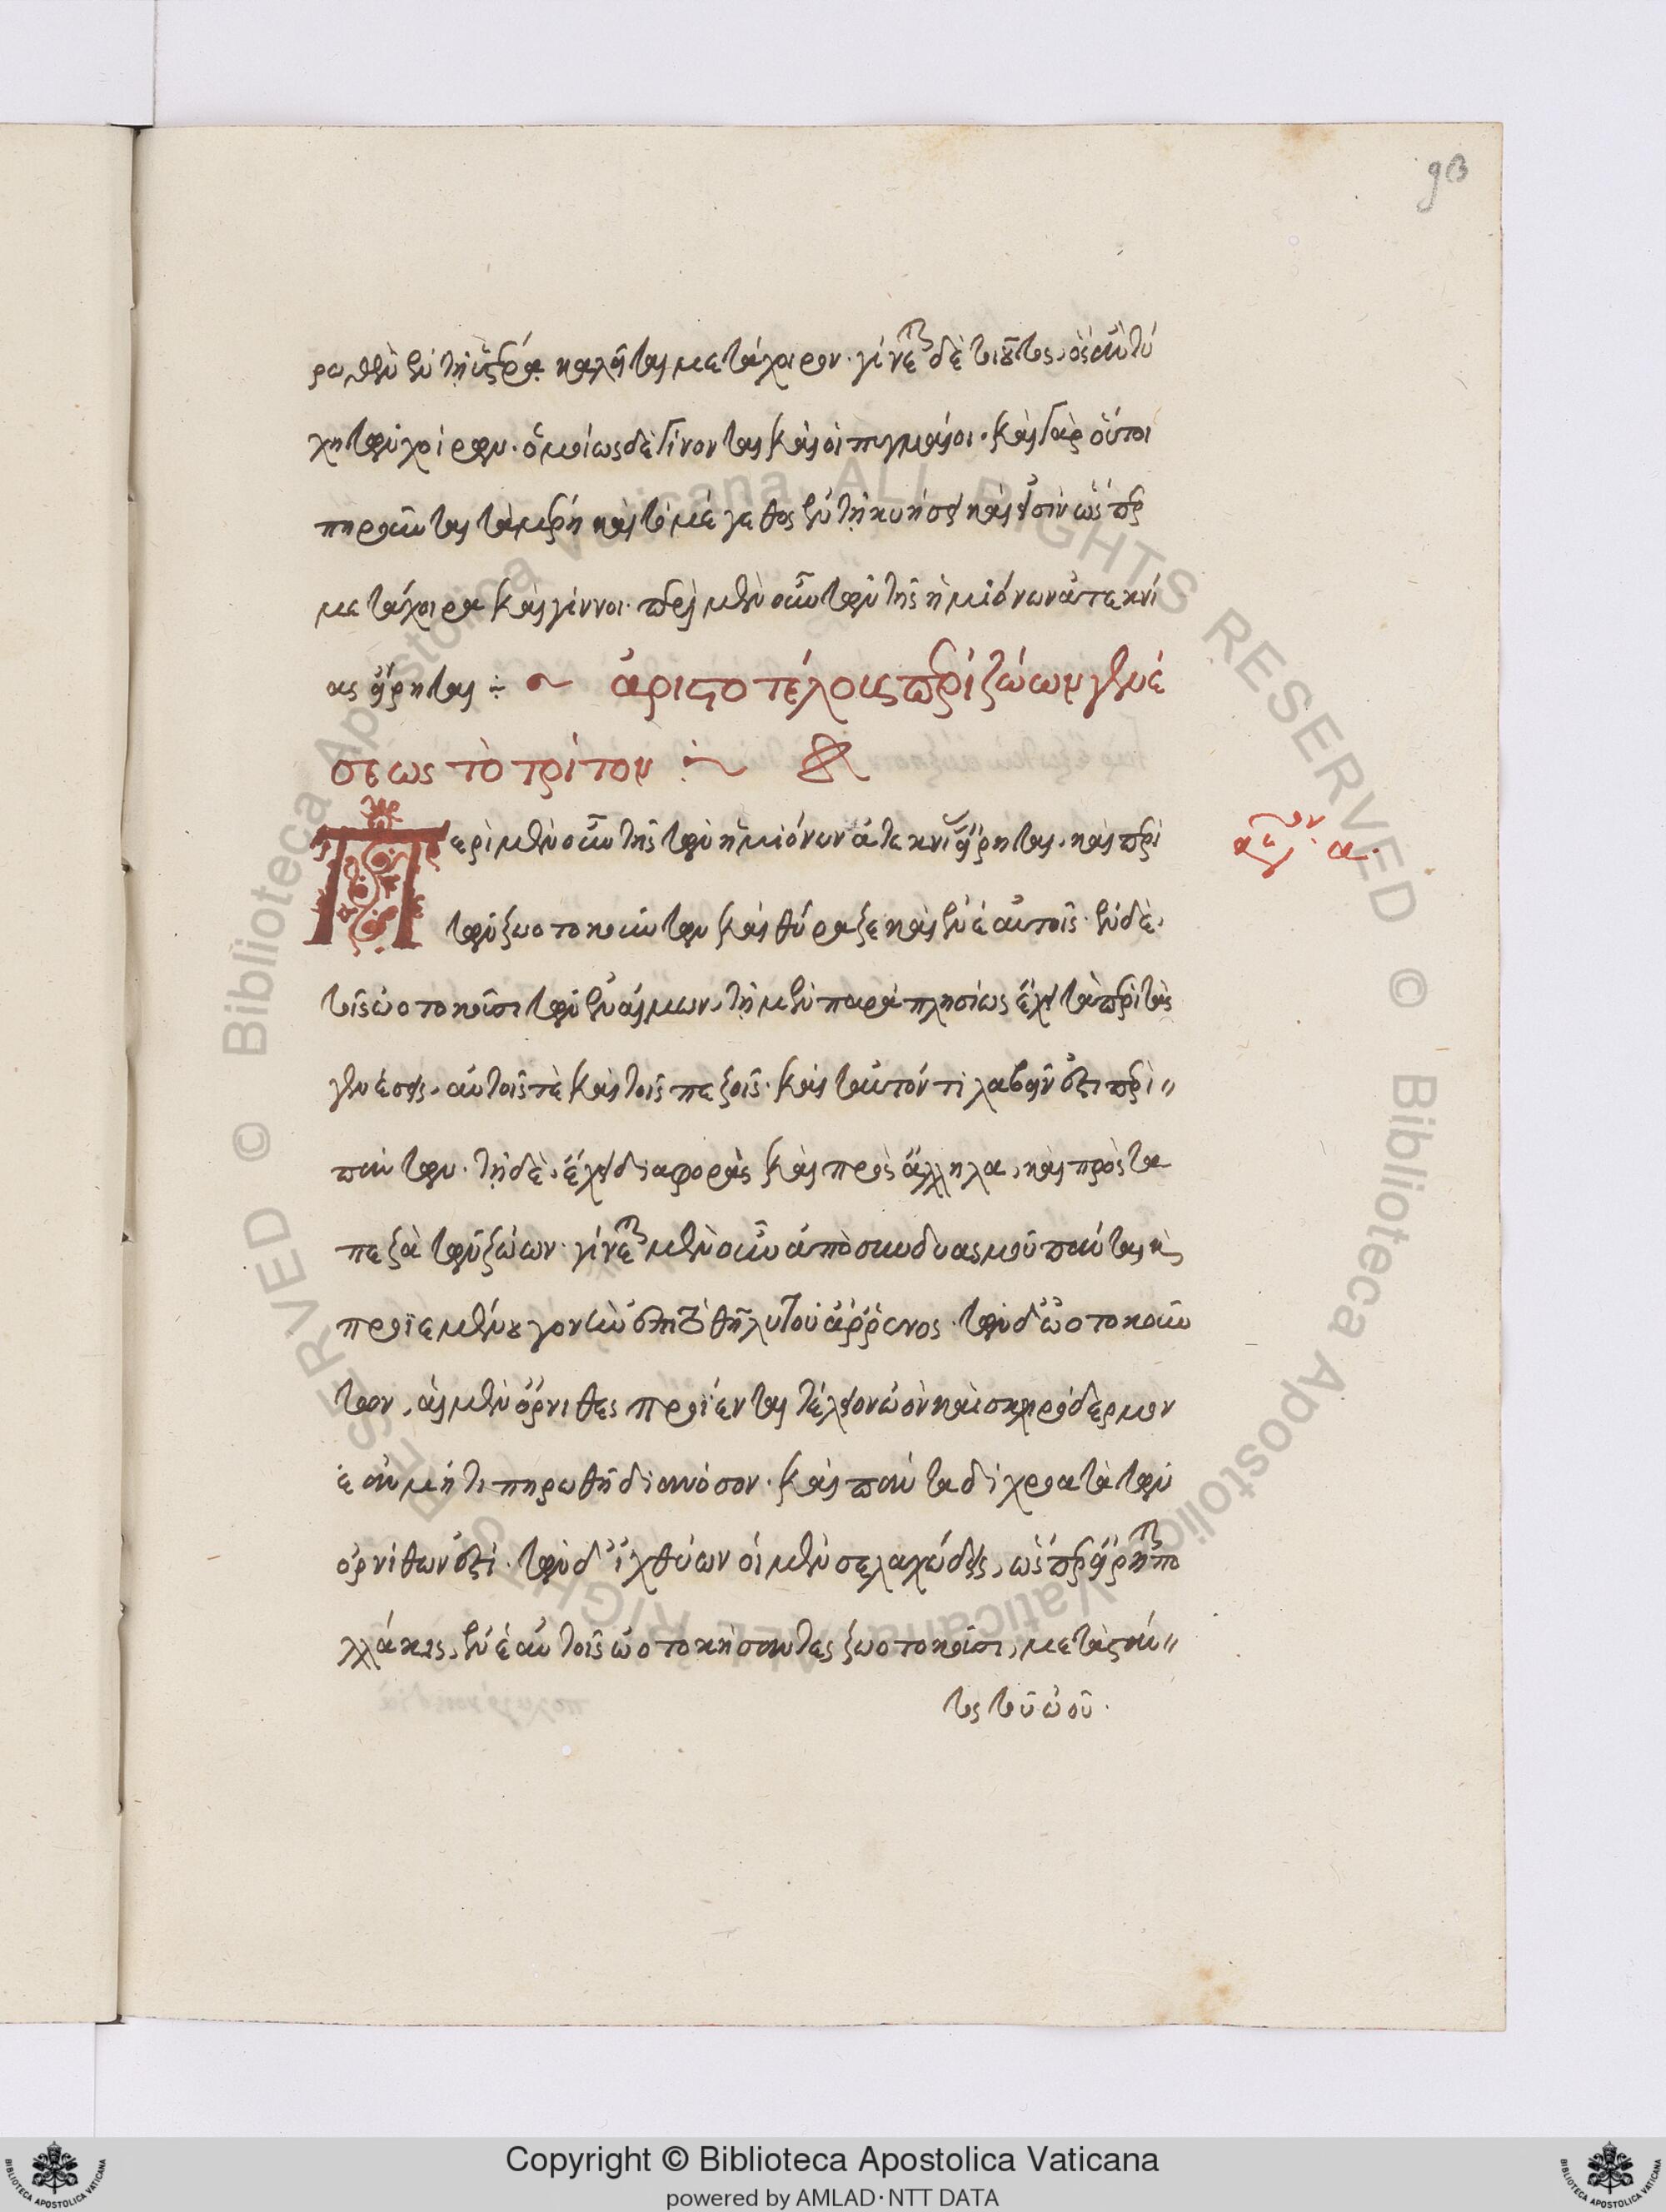 ϟβ
ρωθὲν ἐν τῇ ὑστέρᾳ καλεῖται μετάχοιρον· γίνεται δὲ τοιοῦτος, ὃς ἂν τύ
χῃ τῶν χοίρων· ὁμοίως δὲ γίνονται καὶ οἱ πυγμαῖοι· καὶ γὰρ οὗτοι
πηροῦνται τὰ μέρη καὶ τὸ μέγεθος ἐν τῇ κυήσει καὶ εἰσὶν ὥσπερ
μετάχοιρα καὶ γίννοι· περὶ μὲν οὖν τῶν τῆς ἡμιόνων ἀτεκνί
ας εἴρηται ÷ ~ ἀριστοτέλους περὶ ζώων γενέ
σεως τὸ τρίτον ÷ ~
Περὶ μὲν οὖν τῆς τῶν ἡμιόνων ἀτεκνί εἴρηται, καὶ περὶ
τῶν ζωοτοκούντων καὶ θύραζε καὶ ἐν ἑαυτοῖς· ἐν δὲ
τοῖς ὠοτοκοῦσι τῶν ἐναίμων, τῇ μὲν παραπλησίως ἔχει τὰ περὶ τὰς
γενέσεις, αὐτοῖς τὲ καὶ τοῖς πεζοῖς· καὶ ταυτόν τι λαβεῖν ἔστι περὶ
πάντων· τῇ δὲ, ἔχει διαφορὰς καὶ πρὸς ἄλληλα, καὶ πρὸς τα
πεζὰ τῶν ζώων· γίνεται μὲν οὖν ἀπὸ συνδυασμοῦ πάντα, καὶ
προϊεμένου γονὴν εἰς τὸ θῆλυ τοῦ ἄρρενος· τῶν δ' ὠοτοκούν
των, αἱ μὲν ὄρνιθες προΐενται τέλειον ὠὸν καὶ σκληρόδερμον
ἐὰν μή τι πηρωθῇ διανόσον· καὶ πάντα δίχροα τὰ τῶν
ὀρνίθων ἐστὶ· τῶν δ' ἰχθύων οἱ μὲν σελαχώδεις, ὥσπερ εἴρηται πο
λλάκις, ἐν ἑαυτοῖς ὠοτοκήσαντες ζωοτοκοῦσι, μεταστάν
τος τοῦ ὠοῦ·